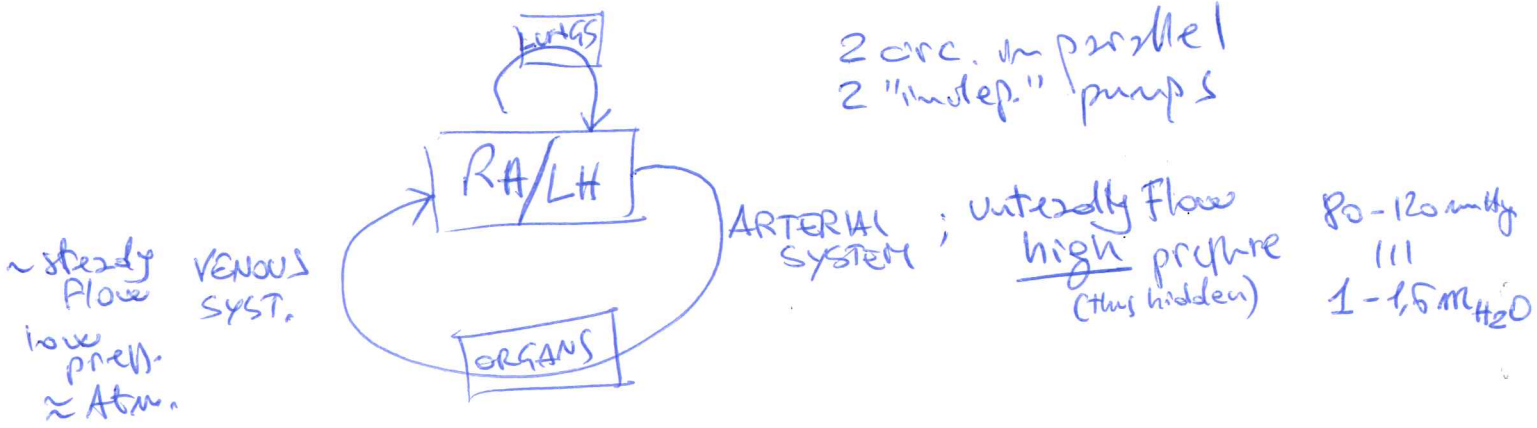 LUNGS
2 circ. in parallel
2 "indep." pumps
RH/LH
ARTERIAL SYSTEM ; unsteady Flow
high pressure
(thus hidden)
80-120 mmHg
III
1-1,5 mH2O
~ steady Flow
VENOUS SYST.
low press.
≈ Atm.
ORGANS